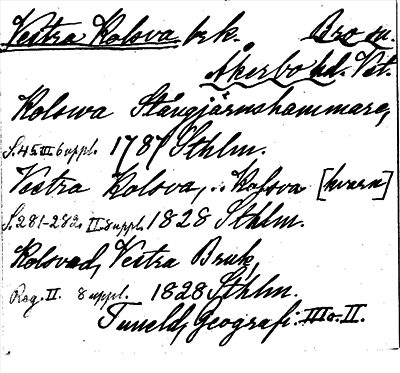 Vestra Kolsva brk. Bro sn.
Åkerbo hd. Vst.
Kolswa Stångjärnshammare,
S. 45 III 6 uppl. 1787 Sthlm.
Vestra Kolsva, .. Kolsva [kvarn]
S. 281-282. II. 8 uppl. 1828 Sthlm.
Kolsvad, Vestra Bruk,
Reg. II. 8 uppl. 1828 Sthlm.
Tuneld, Geografi. III o. II.